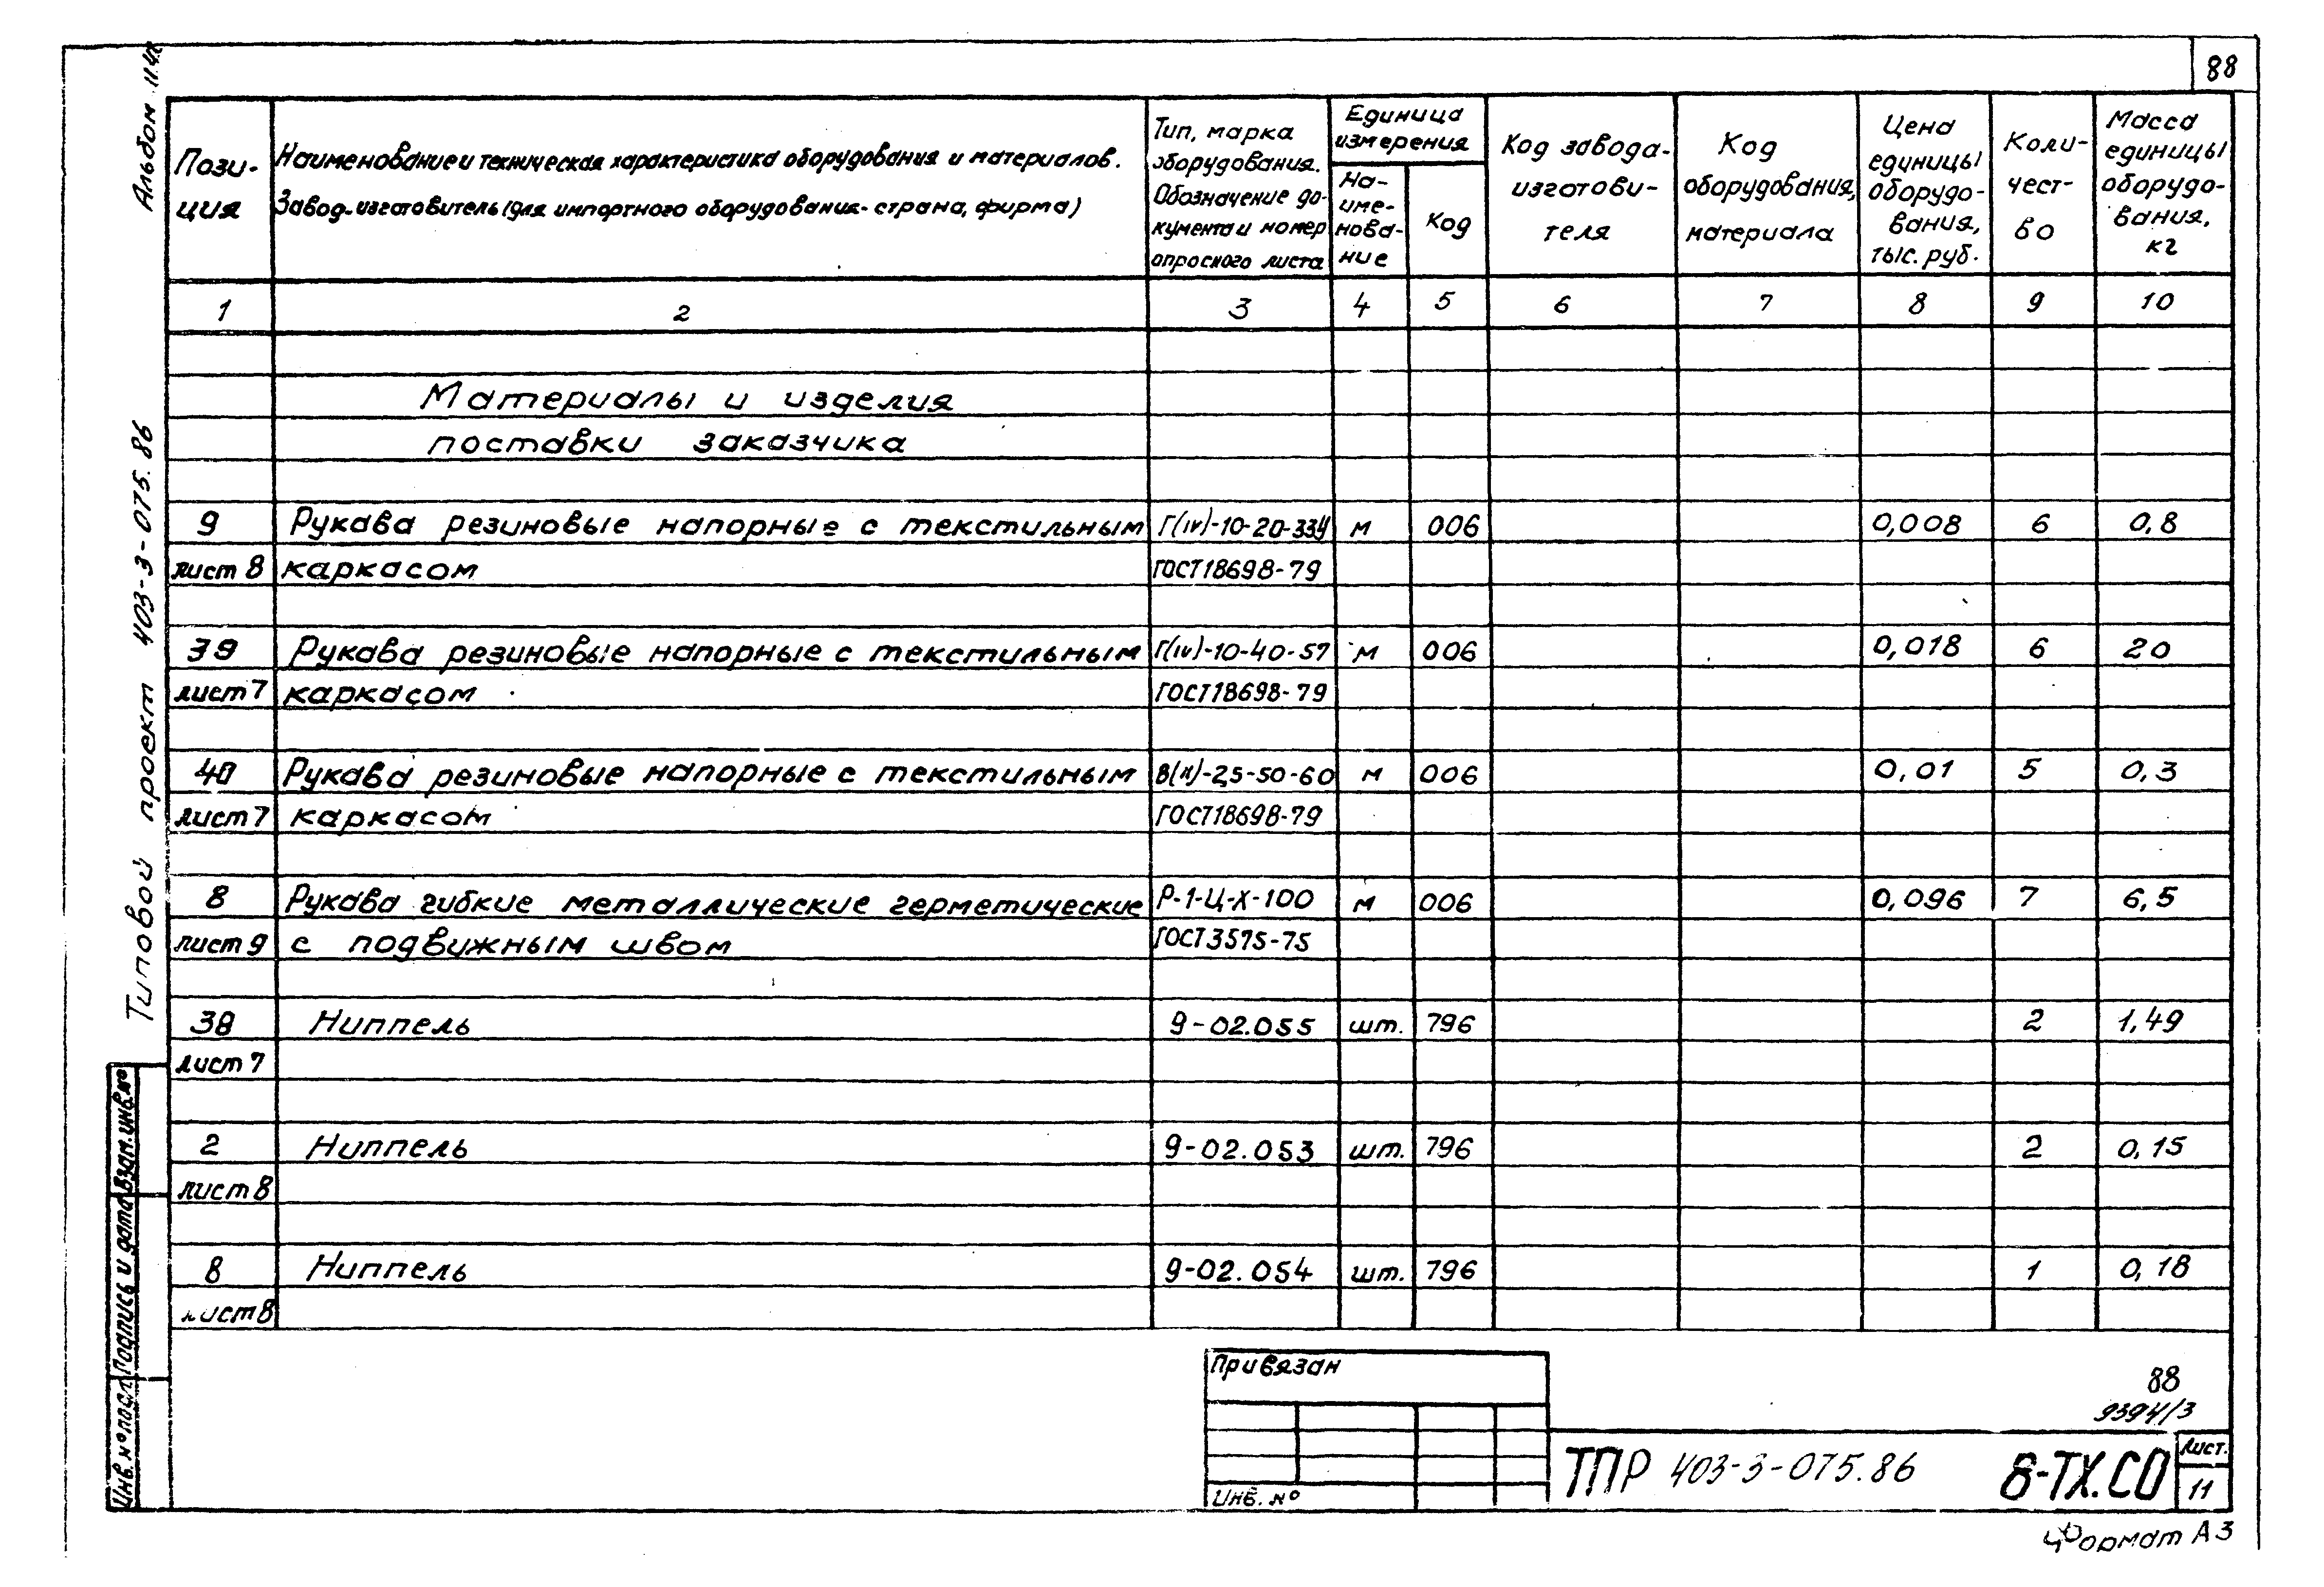 88
Альбом
Типовой проект 403-3-075.86
Пози-
ция
Наименование и техническая характеристика оборудования и материалов.
Завод-изготовитель (для импортного оборудования-страна, фирма)
Тип, марка
оборудования.
Обозначение до-
кумента и номер
опросного листа
Единица
измерения
На-
име-
нова-
ние
Код
Код завода-
изготови-
теля
Код
оборудования,
материала
Цена
единицы
оборудо-
вания,
тыс. руб.
Коли-
чест-
во
Масса
единицы
оборудо-
вания,
кг
1 2 3 4 5 6 7 8 9 10
Материалы и изделия
поставки заказчика
9 Рукава резиновые напорные с текстильным Г(IV)-10-20-33У м 006 0,008 6 0,8
лист 8 каркасом ГОСТ18698-79
39 Рукава резиновые напорные с текстильным Г(IV)-10-40-57 м 006 0,018 6 20
лист 7 каркасом ГОСТ18698-79
40 Рукава резиновые напорные с текстильным В(II)-2,5-50-60 м 006 0,01 5 0,3
лист 7 каркасом ГОСТ18698-79
8 Рукава гибкие металлические герметические Р-1-Ц-Х-100 м 006 0,096 7 6,5
лист 9 с подвижным швом ГОСТ3575-75
38 Ниппель 9-02.055 шт. 796 2 1,49
лист 7
2 Ниппель 9-02.053 шт. 796 2 0,15
лист 8
8 Ниппель 9-02.054 шт. 796 1 0,18
лист 8
Инв. № подл. Подпись и дата Взам. инв. №
Привязан
Инв. №
88
9394/3
ТПР 403-3-075.86 8-ТХ.СО
Лист.
11
Формат А3